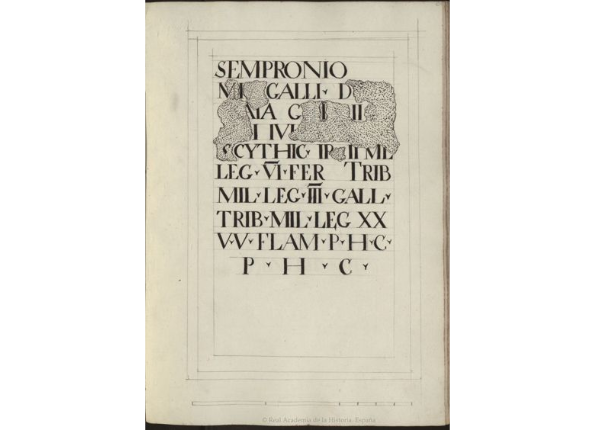 SEMPRONIO
GALLI· D
MA G II
IIVI
SCYTHIC· TR II MIL
LEG·VI·FER TRIB
MIL·LEG·III·GALL·
TRIB·MIL·LEG XX
V·V·FLAM·P·H·C·
P · H · C ·
© Real Academia de la Historia. España